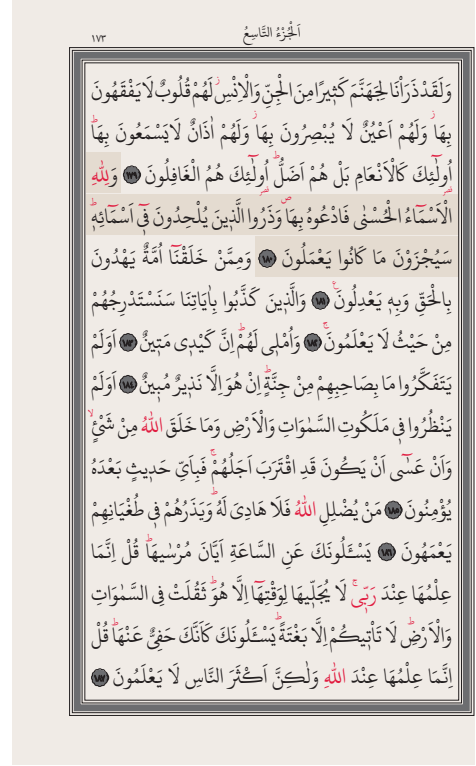 اَلْجُزْءُ التَّاسِعُ
١٧٣
وَلَقَدْ ذَرَأْنَا لِجَهَنَّمَ كَثِيرًا مِنَ الْجِنِّ وَالْاِنْسِۘ لَهُمْ قُلُوبٌ لَا يَفْقَهُونَ
بِهَاۘ وَلَهُمْ اَعْيُنٌ لَا يُبْصِرُونَ بِهَاۘ وَلَهُمْ اٰذَانٌ لَا يَسْمَعُونَ بِهَاۜ
اُولٰٓئِكَ كَالْاَنْعَامِ بَلْ هُمْ اَضَلُّۜ اُولٰٓئِكَ هُمُ الْغَافِلُونَ ﴿١٧٩﴾ وَلِلّٰهِ
الْاَسْمَٓاءُ الْحُسْنٰى فَادْعُوهُ بِهَاۖ وَذَرُوا الَّذِينَ يُلْحِدُونَ فٓي اَسْمَٓائِهٖۜ
سَيُجْزَوْنَ مَا كَانُوا يَعْمَلُونَ ﴿١٨٠﴾ وَمِمَّنْ خَلَقْنَٓا اُمَّةٌ يَهْدُونَ
بِالْحَقِّ وَبِهٖ يَعْدِلُونَ۟ ﴿١٨١﴾ وَالَّذِينَ كَذَّبُوا بِاٰيَاتِنَا سَنَسْتَدْرِجُهُمْ
مِنْ حَيْثُ لَا يَعْلَمُونَۚ ﴿١٨٢﴾ وَاُمْلٖى لَهُمْۜ اِنَّ كَيْدٖى مَتٖينٌ ﴿١٨٣﴾ اَوَلَمْ
يَتَفَكَّرُوا مَا بِصَاحِبِهِمْ مِنْ جِنَّةٍۜ اِنْ هُوَ اِلَّا نَذٖيرٌ مُبٖينٌ ﴿١٨٤﴾ اَوَلَمْ
يَنْظُرُوا فٖى مَلَكُوتِ السَّمٰوَاتِ وَالْاَرْضِ وَمَا خَلَقَ اللّٰهُ مِنْ شَیْءٍۙ
وَاَنْ عَسٰٓى اَنْ يَكُونَ قَدِ اقْتَرَبَ اَجَلُهُمْۚ فَبِاَىِّ حَدٖيثٍ بَعْدَهُ
يُؤْمِنُونَ ﴿١٨٥﴾ مَنْ يُضْلِلِ اللّٰهُ فَلَا هَادِىَ لَهُۜ وَيَذَرُهُمْ فٖى طُغْيَانِهِمْ
يَعْمَهُونَ ﴿١٨٦﴾ يَسْـَٔلُونَكَ عَنِ السَّاعَةِ اَيَّانَ مُرْسٰيهَاۜ قُلْ اِنَّمَا
عِلْمُهَا عِنْدَ رَبّٖىۚ لَا يُجَلّٖيهَا لِوَقْتِهَٓا اِلَّا هُوَۜ ثَقُلَتْ فِى السَّمٰوَاتِ
وَالْاَرْضِۜ لَا تَأْتٖيكُمْ اِلَّا بَغْتَةًۜ يَسْـَٔلُونَكَ كَاَنَّكَ حَفِىٌّ عَنْهَاۜ قُلْ
اِنَّمَا عِلْمُهَا عِنْدَ اللّٰهِ وَلٰكِنَّ اَكْثَرَ النَّاسِ لَا يَعْلَمُونَ ﴿١٨٧﴾